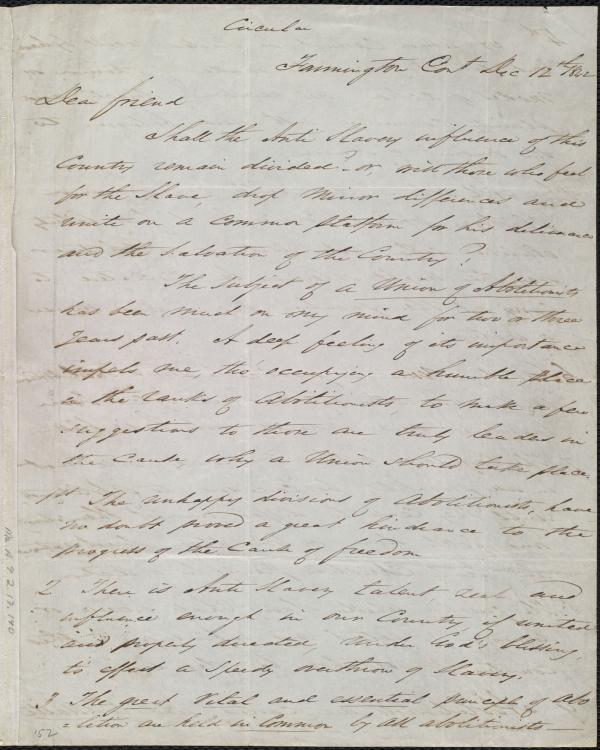 Circular
Farmington Cont Dec 12th 1842
Dear friend
Shall the Anti Slavery influence of this
Country remain divided? or, will those who feel
for the Slave, drop minor differences and
unite on a common platform for his deliverance
and the salvation of the Country?
The subject of a Union of Abolitionists
has been much on my mind for two or three
years past. A deep feeling of its importance
impels me, tho' occupying a humble place
in the ranks of Abolitionists, to make a few
suggestions to those are truly leaders in
the cause, why a Union should take place.
1st The unhappy divisions of Abolitionists, have
no doubt proved a great hindrance to the
progress of the Cause of freedom
2 There is Anti Slavery talent zeal and
influence enough in our Country, if united
and properly directed, under God's blessing
to effect a speedy overthrow of Slavery.
3 The great vital and essential principles of abo
=lition are held in common by all abolitionists—
152